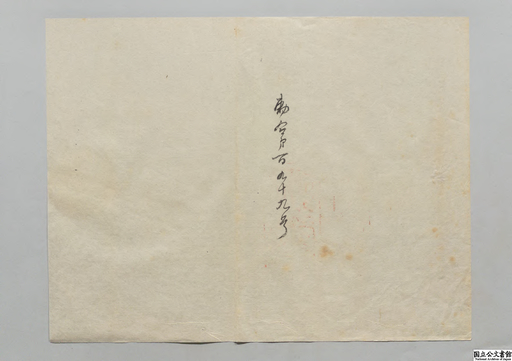 勅令第百九十九号
国立公文書館
National Archives of Japan